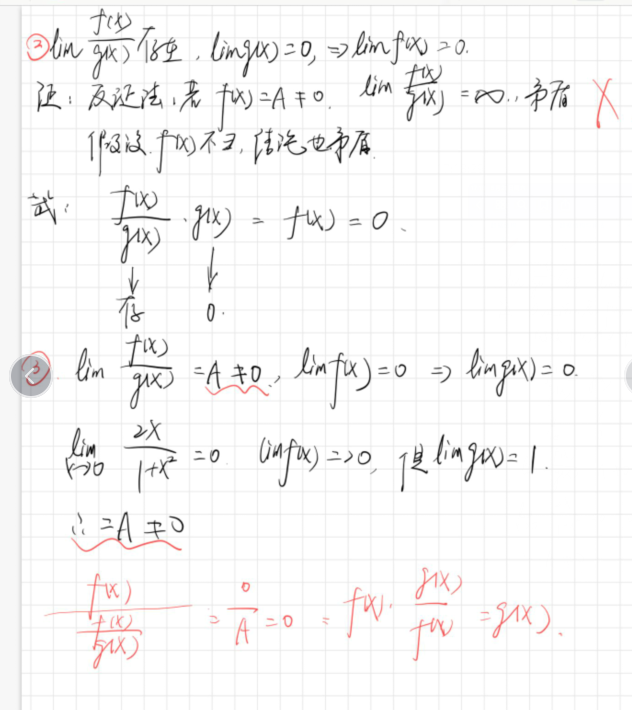 ② lim f(x)/g(x) 存在, lim g(x)=0, ⇒ lim f(x)=0.
证: 反证法, 若 f(x)=A≠0. lim f(x)/g(x) =∞, 矛盾 ×
假设 f(x)不∃, 结论也矛盾.
或: f(x)/g(x) · g(x) = f(x) = 0.
↓ ↓
存 0.
③. lim f(x)/g(x) =A≠0, lim f(x)=0 ⇒ lim g(x)=0.
lim x→0 2x/1+x² =0 lim f(x)=>0, 但 lim g(x)=1.
∴ =A≠0
f(x)/(f(x)/g(x)) = 0/A =0 = f(x)· g(x)/f(x) =g(x).